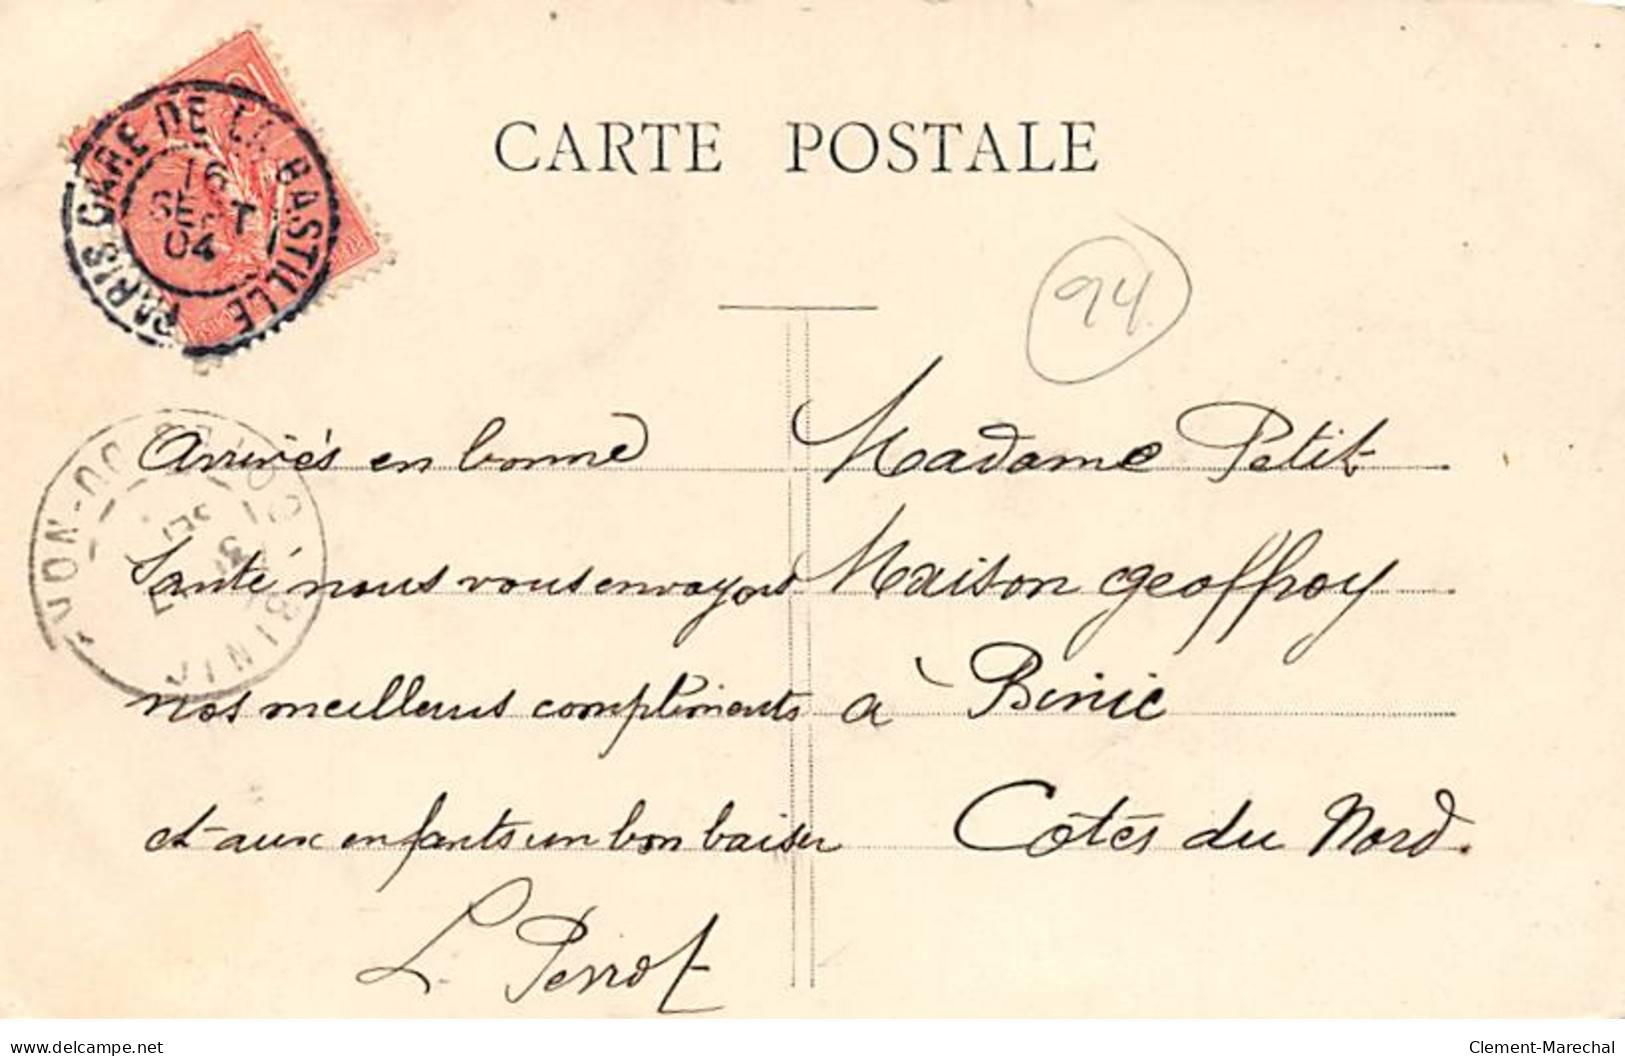 CARTE POSTALE
PARIS GARE DE LA BASTILLE
16
SEPT
04
94
BINIC
CÔTES-DU-NORD
Arrivés en bonne
Santé nous vous envoyons
nos meilleurs compliments
et aux enfants un bon baiser
L. Perrot
Madame Petit
Maison Geoffroy
à Binic
Côtes du Nord.
delcampe.net
Clement-Marechal